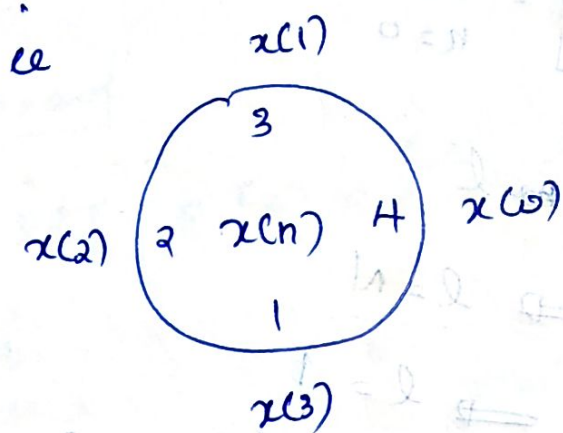 ie
x(1)
3
x(2) 2 x(n) 4 x(0)
1
x(3)